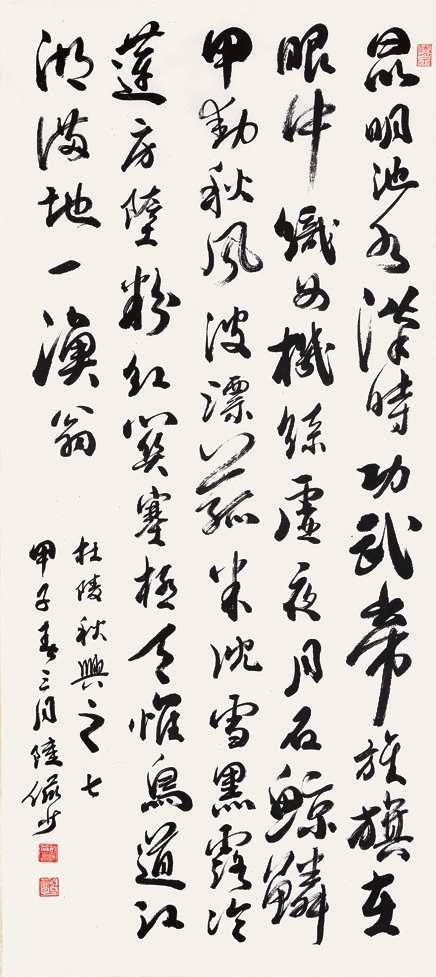 昆明池水漢時功武帝旌旗在
眼中織女機絲虛夜月石鯨鱗
甲動秋風波漂菰米沈雪黑露冷
蓮房墜粉紅關塞極天惟鳥道江
湖滿地一漁翁
杜陵秋興之七
甲子春三月陸儼少